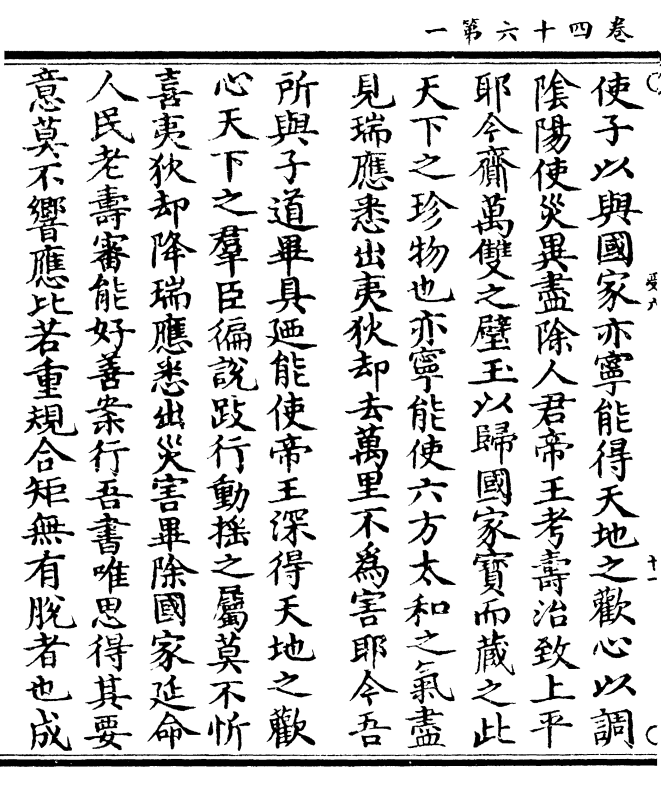 卷四十六第一
使子以與國家亦寧能得天地之歡心以調
陰陽使災異盡除人君帝王考壽治致上平
耶今齎萬雙之璧玉以歸國家寶而藏之此
天下之珍物也亦寧能使六方太和之氣盡
見瑞應悉出夷狄却去萬里不為害耶今吾
所與子道畢具迺能使帝王深得天地之歡
心天下之羣臣徧說跂行動搖之屬莫不忻
喜夷狄却降瑞應悉出災害畢除國家延命
人民老壽審能好善案行吾書唯思得其要
意莫不響應比若重規合矩無有脫者也成
受六
十一